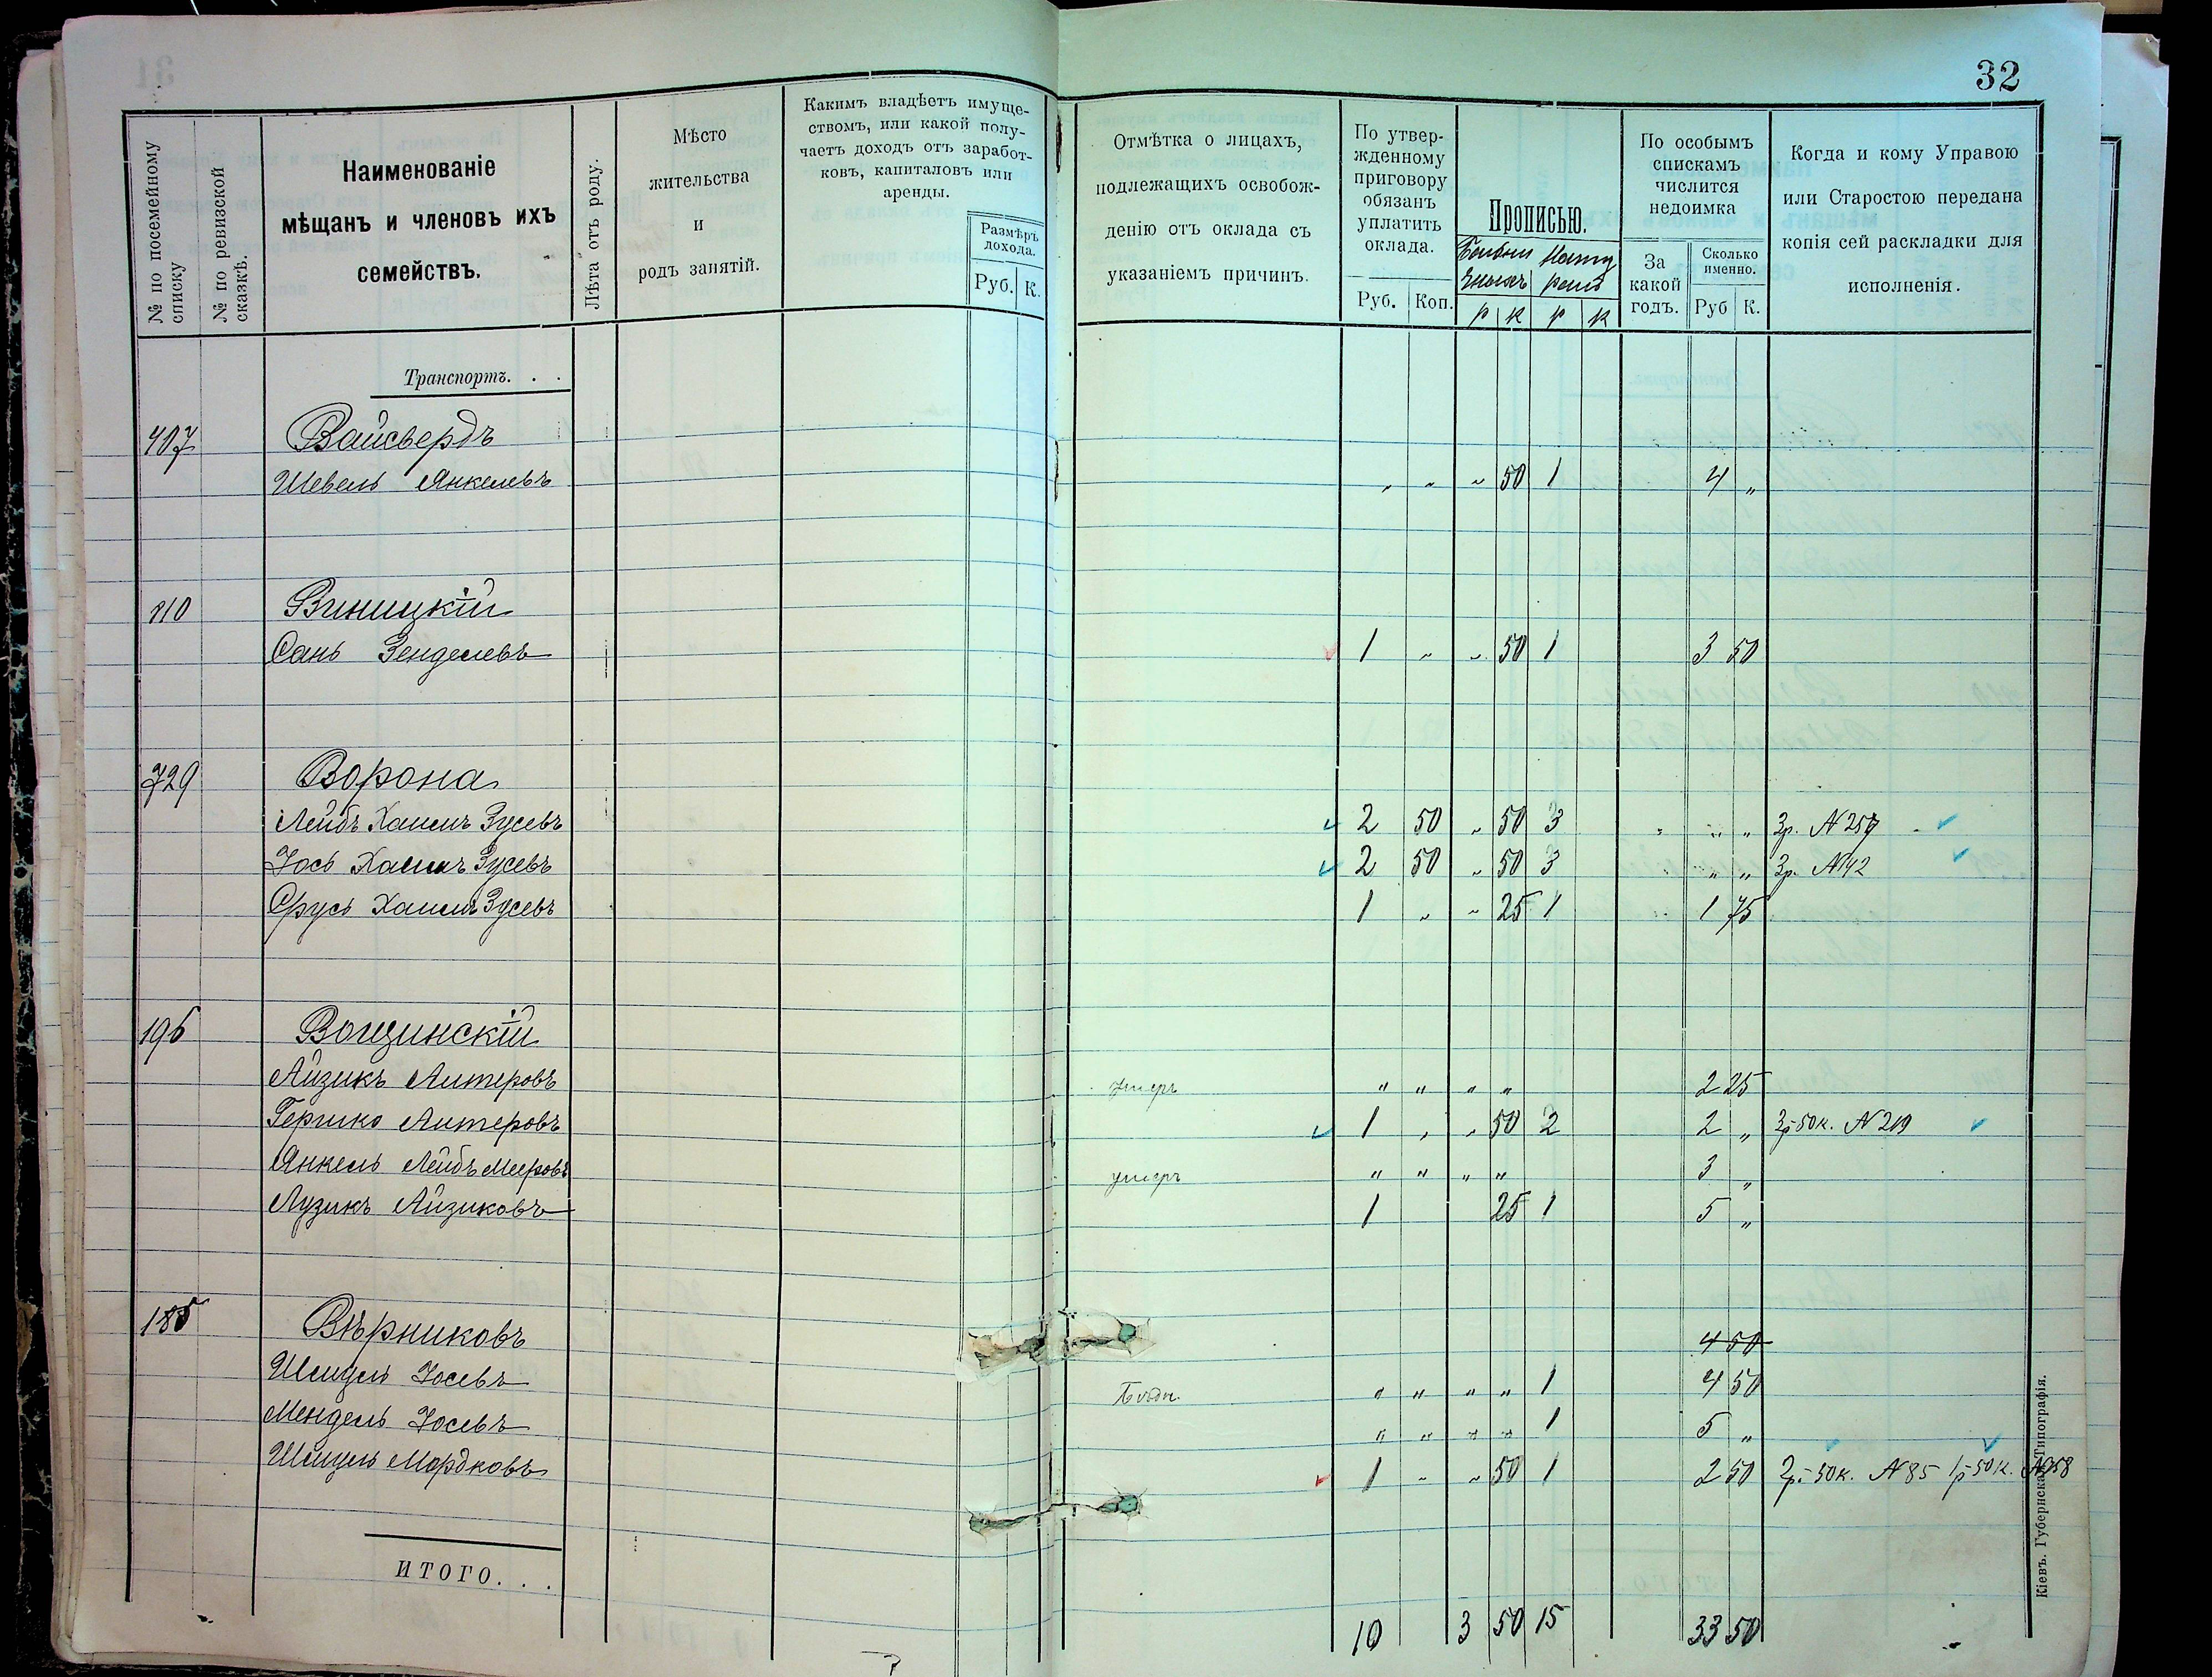 32
№ по посемейному списку
№ по ревизской сказкѣ.
Наименованіе
мѣщанъ и членовъ ихъ
семействъ.
Лѣта отъ роду.
Мѣсто
жительства
и
родъ занятій.
Какимъ владѣетъ имуще-
ствомъ, или какой полу-
чаетъ доходъ отъ заработ-
ковъ, капиталовъ или
аренды.
Размѣръ
дохода.
Руб. К.
Отмѣтка о лицахъ,
подлежащихъ освобож-
денію отъ оклада съ
указаніемъ причинъ.
По утвер-
жденному
приговору
обязанъ
уплатить
оклада.
Руб. Коп.
Прописью.
р к р к
По особымъ
спискамъ
числится
недоимка
За
какой
годъ.
Сколько
именно.
Руб К.
Когда и кому Управою
или Старостою передана
копія сей раскладки для
исполненія.
Транспортъ. . .
407 Вайсбердъ
Шевель Янкелевъ " " " 50 1 4 "
810 Виницкій
Сань Зенделевъ 1 " " 50 1 3 50
729 Ворона
Лейбъ Хаимъ Зусевъ 2 50 " 50 3 " " " 3р. N 257
Іось Хаимъ Зусевъ 2 50 " 50 3 " " " 3р. N 42
Срусь Хаимъ Зусевъ 1 " " 25 1 1 75
196 Вощинскій
Айзикъ Антеровъ умеръ " " " " 2 25
Гершко Антеровъ 1 " " 50 2 2 " 3р 50к. N 219
Янкель Лейбъ Мееровъ умеръ " " " " 3 "
Лузикъ Айзиковъ 1 25 1 5 "
185 Вѣрниковъ 4 50
Шмуль Іосевъ Бѣдн. " " " " 1 4 50
Мендель Іосевъ " " " " 1 5 "
Шмуль Мордковъ 1 " " 50 1 2 50 2р. 50к. N 85 1р 50к. N 358
ИТОГО. . .
10 3 50 15 33 50
Кіевъ. Губернская Типографія.